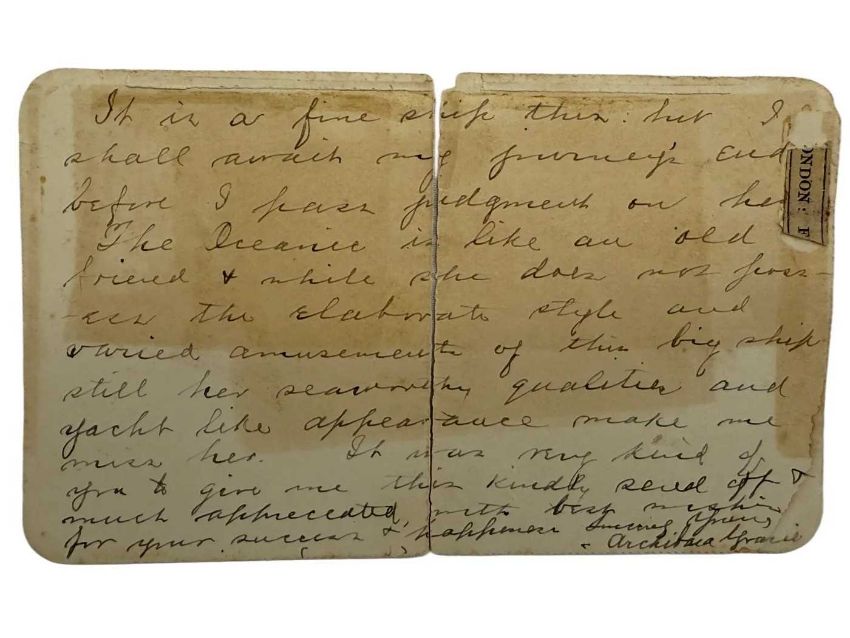 It is a fine ship this: but I
shall await my journey's end
before I pass judgment on her
The Oceanic is like an old
friend & while she does not poss-
-ess the elaborate style and
varied amusements of this big ship
still her seaworthy qualities and
yacht like appearance make me
miss her. It was very kind of
you to give me this kindly send off &
much appreciated, with best wishes
for your success & happiness Sincerely Yours
Archibald Gracie
ONDON: F